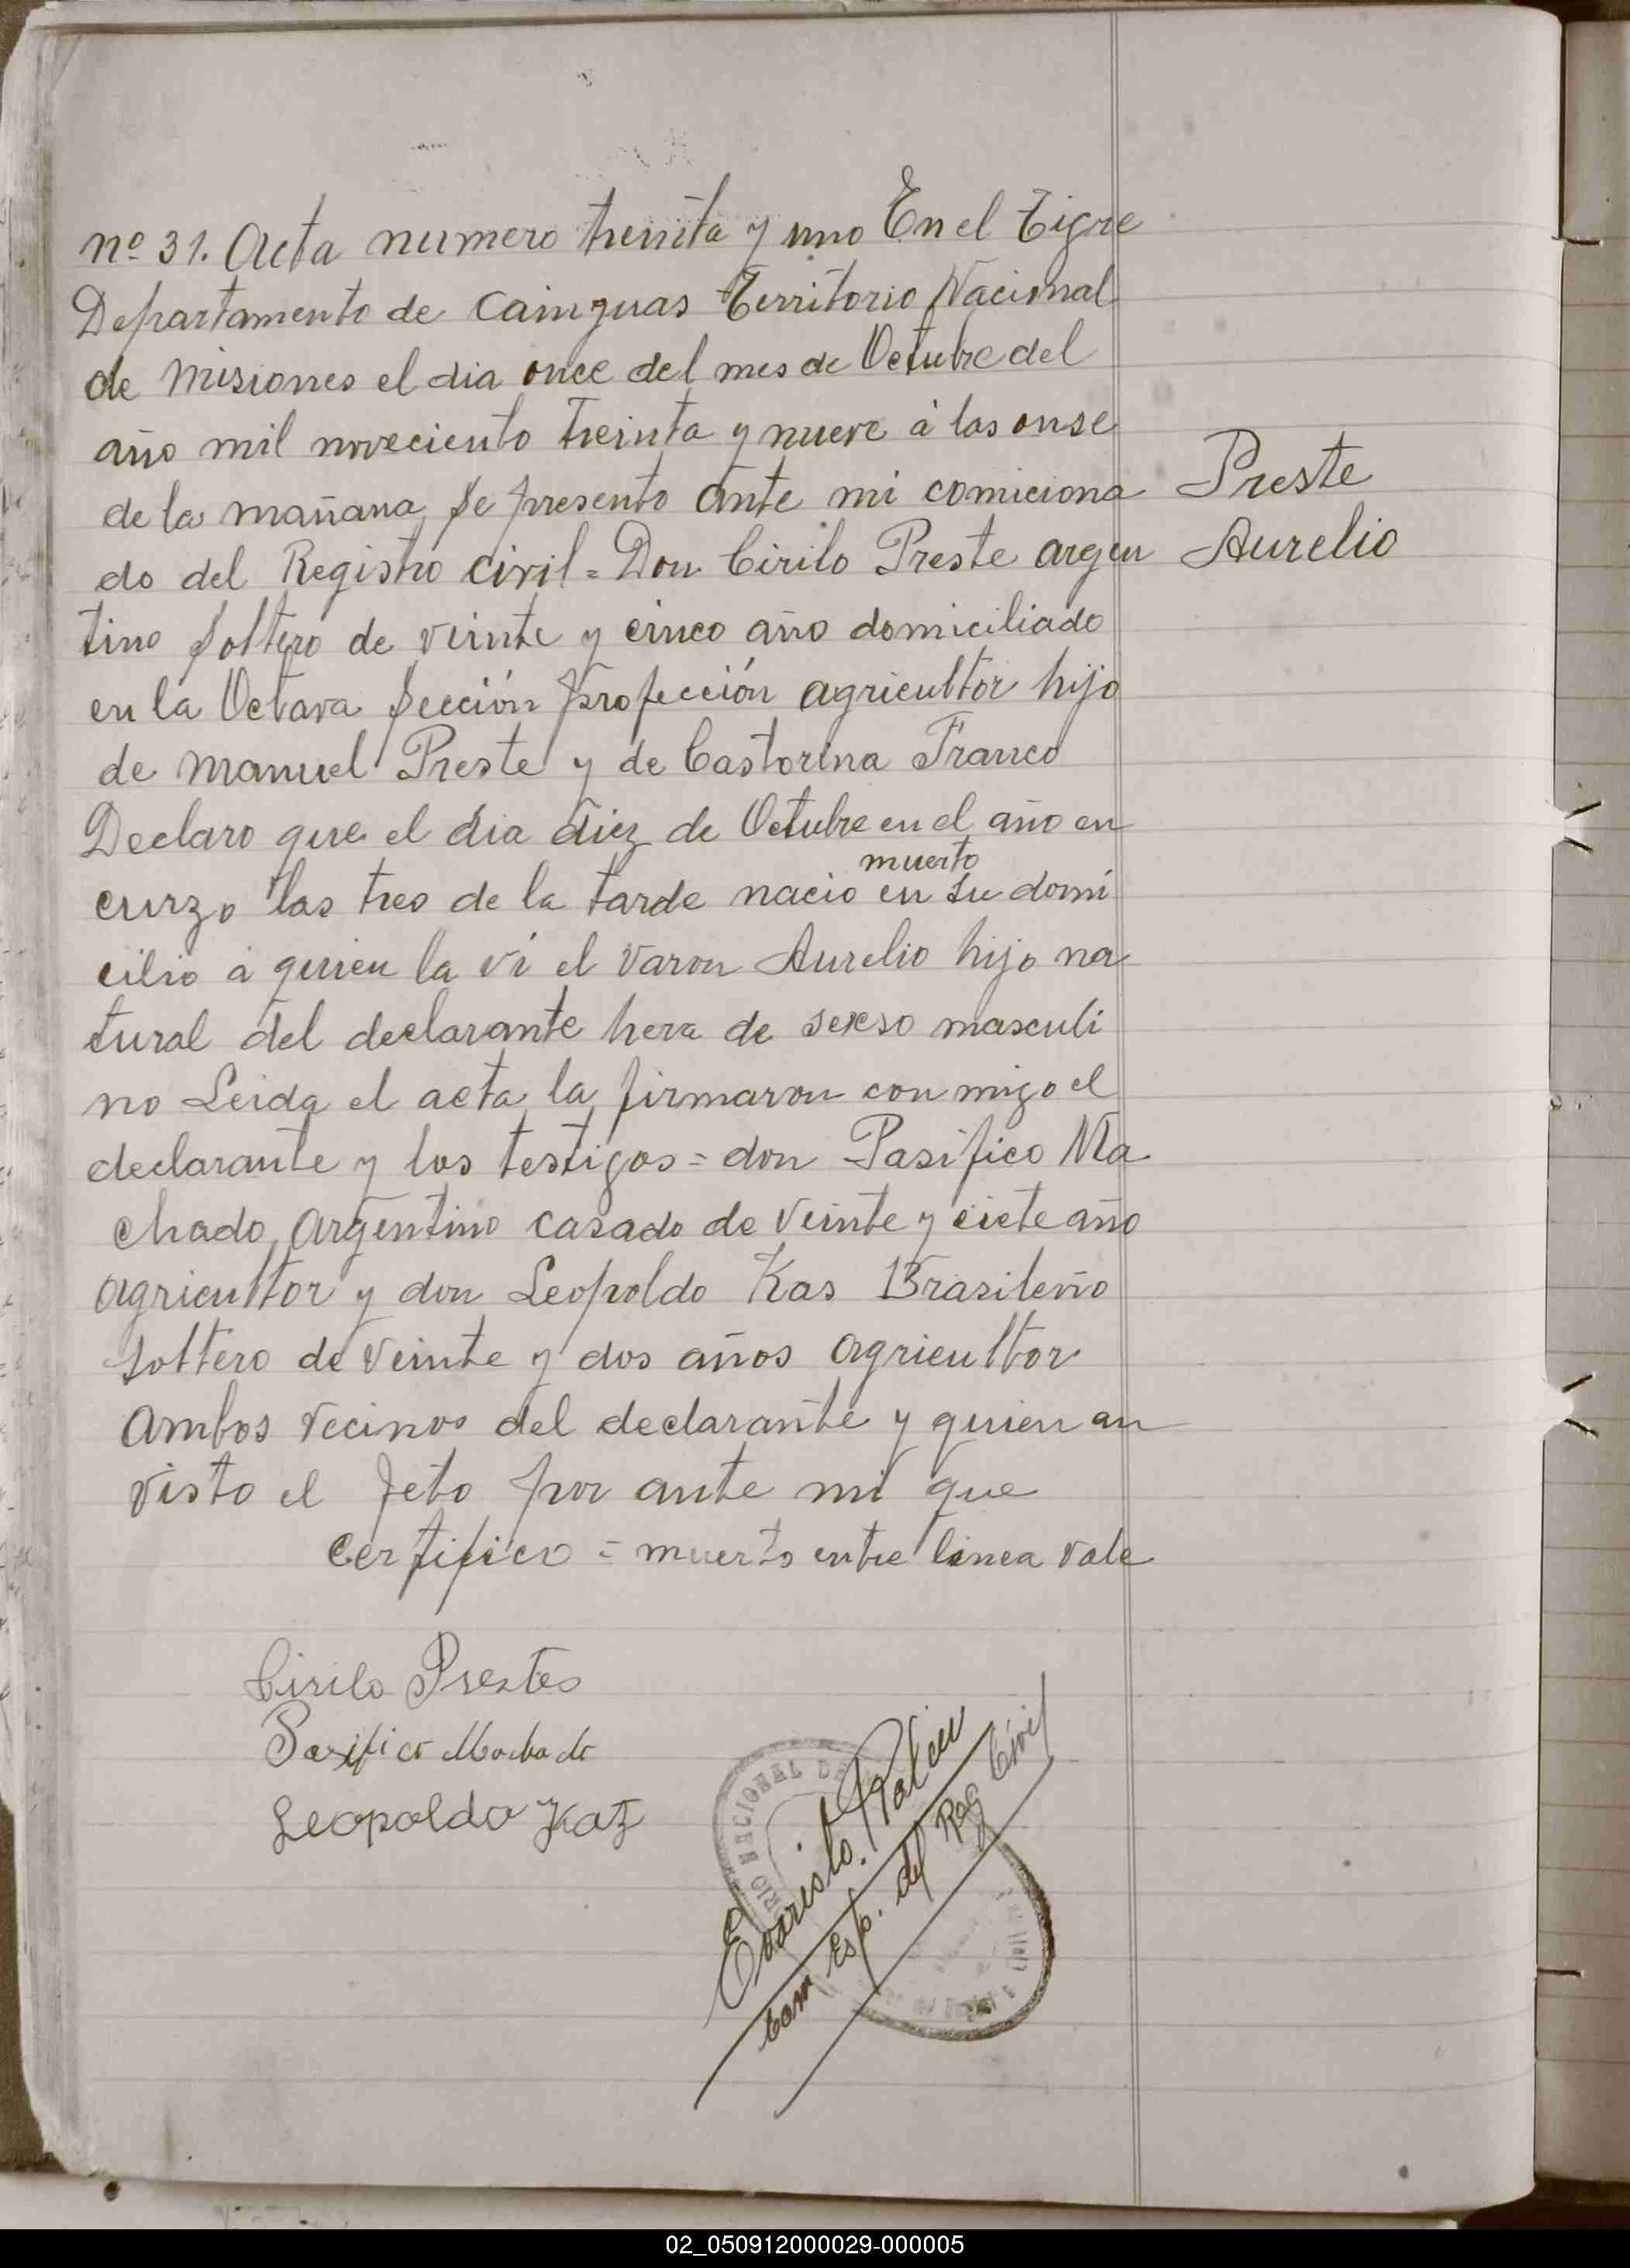 nº 31. Acta numero treinta y uno En el Tigre
Departamento de Cainguas Territorio Nacional
de Misiones el dia once del mes de Octubre del
año mil noveciento treinta y nueve á las onse
de la mañana se presento ante mi comiciona
do del Registro civil = Don Cirilo Preste argen
tino soltero de veinte y cinco año domiciliado
en la Octava sección profección agricultor hijo
de manuel Preste y de Castorina Franco
Declaro que el dia diez de Octubre en el año en
muerto
curzo las tres de la tarde nacio en su domi
cilio á quien la ví el varon Aurelio hijo na
tural del declarante hera de sexso masculi
no Leida el acta la firmaron con migo el
declarante y los testigos = don Pasifico Ma
chado Argentino casado de veinte y ciete año
agricultor y don Leopoldo Kas Brasileño
soltero de veinte y dos años agricultor
ambos vecinos del declarante y quien an
visto el feto por ante mi que
certifico = muerto entre linea vale
Preste
Aurelio
Cirilo Prestes
Pasifico Machado
Leopoldo Kaz
RIO NACIONAL DE
Evaristo
Com Esp. del Reg Civil
02_050912000029-000005